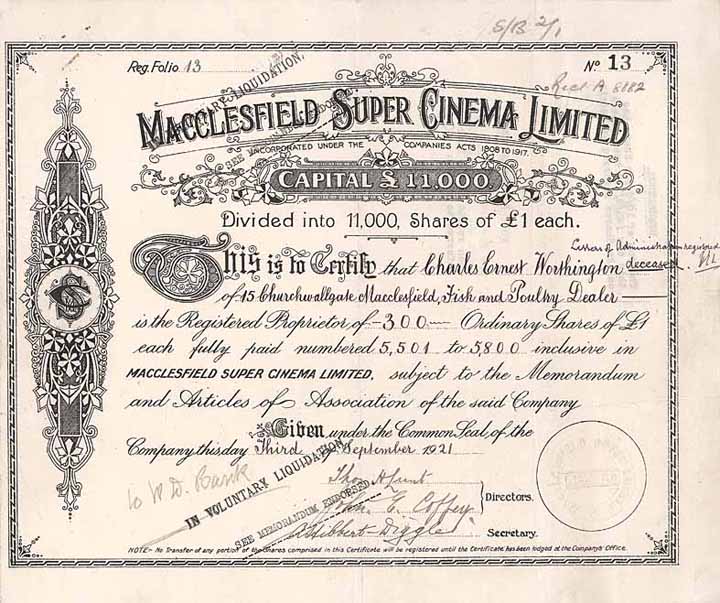 S/B 2/1
Reg. Folio 13
Nº 13
Recd A 8882
IN VOLUNTARY LIQUIDATION,
SEE MEMORANDUM ENDORSED.
MACCLESFIELD SUPER CINEMA LIMITED
INCORPORATED UNDER THE COMPANIES ACTS 1908 TO 1917.
CAPITAL £ 11,000
Divided into 11,000, Shares of £1 each.
Letters of Administration registered
This is to Certify that Charles Ernest Worthington deceased.
of 15 Churchwallgate Macclesfield, Fish and Poultry Dealer
is the Registered Proprietor of -300- Ordinary Shares of £1
each fully paid numbered 5,501 to 5,800 inclusive in
MACCLESFIELD SUPER CINEMA LIMITED, subject to the Memorandum
and Articles of Association of the said Company
Given under the Common Seal, of the
Company this day Third September 1921
to W D. Bank
IN VOLUNTARY LIQUIDATION,
SEE MEMORANDUM ENDORSED.
Thos
E. Coffey
Directors.
Hibbert-Diggle
Secretary.
NOTE:- No Transfer of any portion of the Shares comprised in this Certificate will be registered until the Certificate has been lodged at the Company's Office.